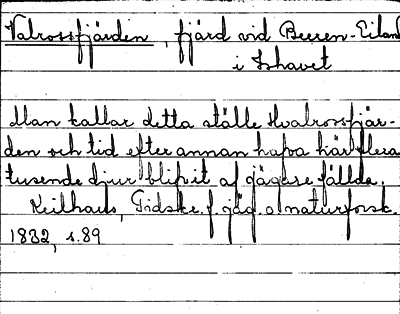 Valrossfjärden, fjärd vid Beeren-Eiland
i Ishavet
Man kallar detta ställe Hvalrossfjär-
den och tid efter annan hafva här flera
tusende djur blifvit af jägare fällda.
Keilhaus, Tidskr. f. jäg. o naturforsk.
1832, s. 89